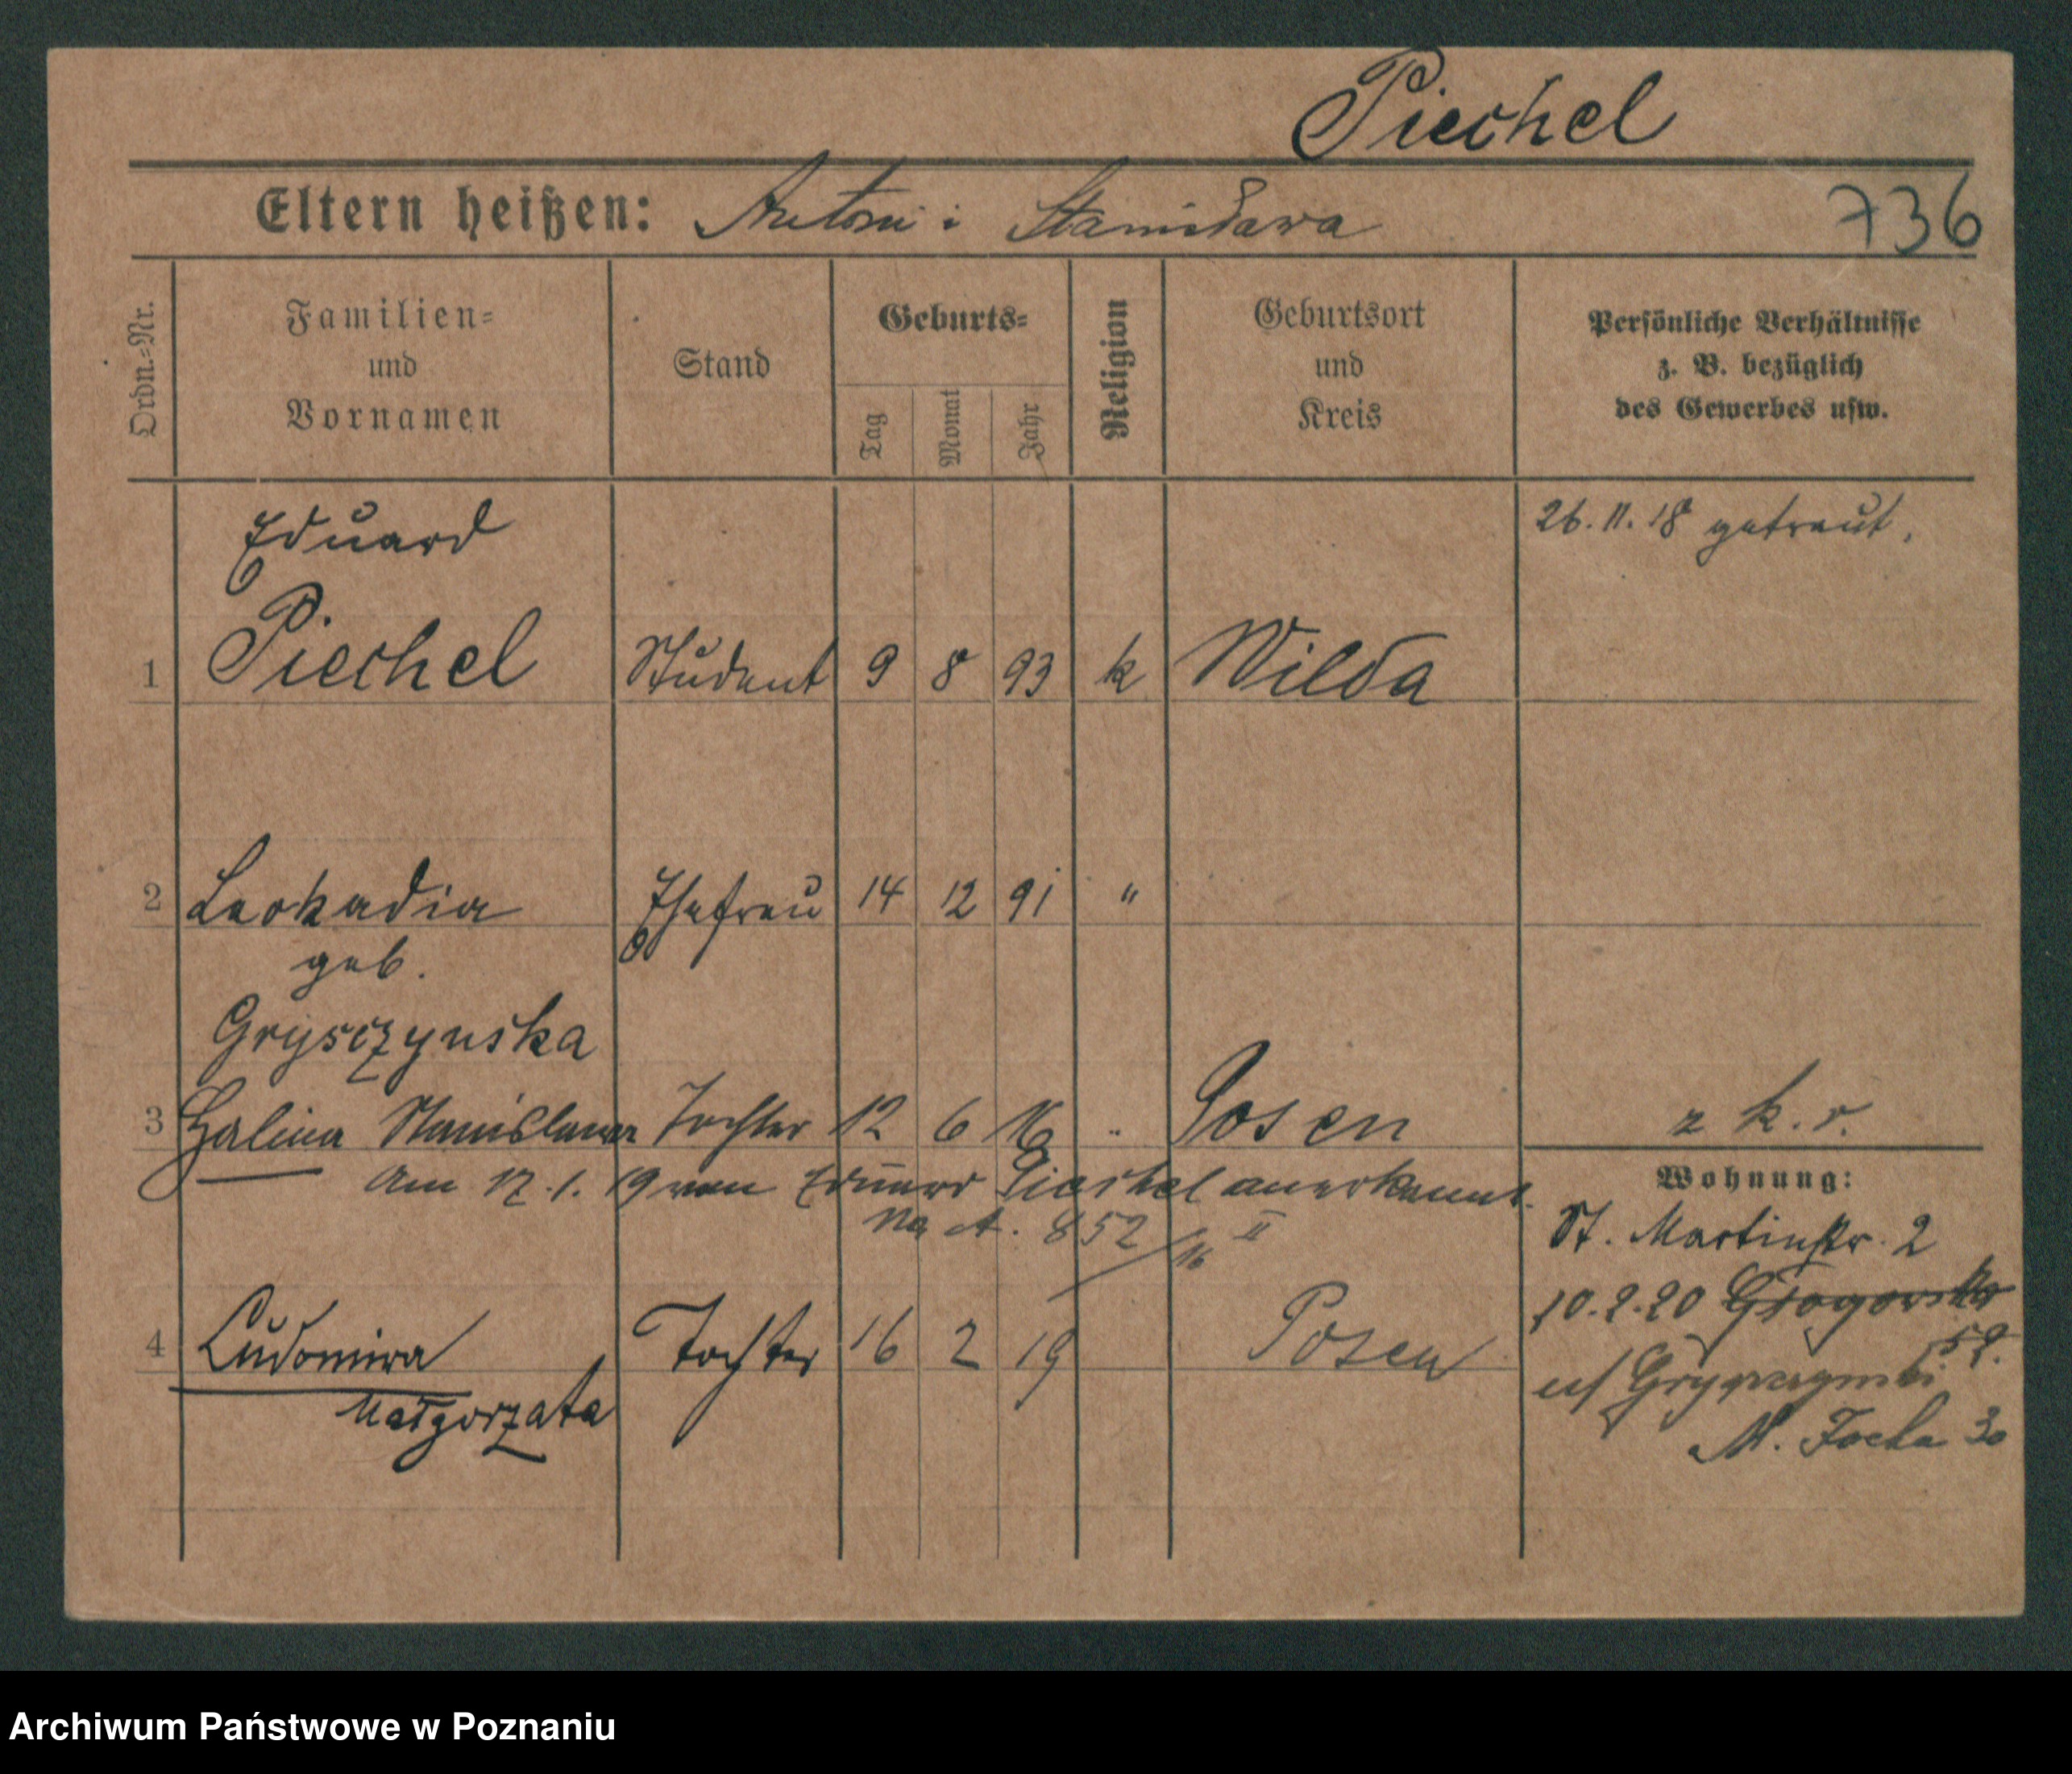 Piechel
Eltern heißen: Antoni i Stanisława
736
Ordn.-Nr.
Familien-
und
Vornamen
Stand
Geburts-
Tag
Monat
Jahr
Religion
Geburtsort
und
Kreis
Persönliche Verhältnisse
z. B. bezüglich
des Gewerbes usw.
Eduard
26. 11. 18 getraut.
1 Piechel Student 9 8 93 k Wilda
2 Leokadia Ehefrau 14 12 91 "
geb.
Grysczynska
3 Halina Stanislawa Tochter 12 6 16 " Posen
z k. r.
Am 17. 1. 19 von Eduard Piechel anerkannt.
No A. 852/16 II
Wohnung:
St. Martinstr. 2
10.2.20 Głogowska
59.
4 Ludomira Tochter 16 2 19 Posen
Małgorzata
M. Focha 30
Archiwum Państwowe w Poznaniu